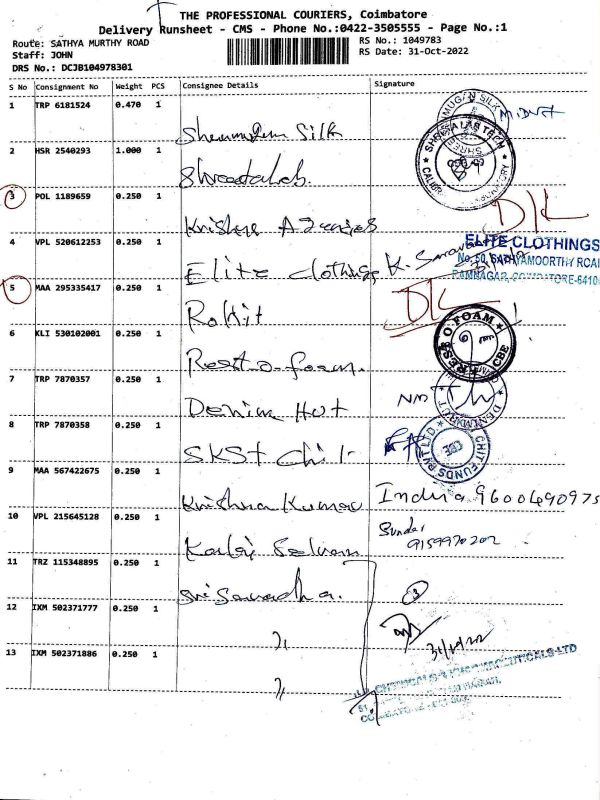 THE PROFESSIONAL COURIERS, Coimbatore
Delivery Runsheet - CMS - Phone No.:0422-3505555 - Page No.:1
Route: SATHYA MURTHY ROAD
RS No.: 1049783
Staff: JOHN
RS Date: 31-Oct-2022
DRS No.: DCJB104978301
S No Consignment No Weight PCS Consignee Details Signature
1 TRP 6181524 0.470 1
Silk
2 HSR 2540293 1.000 1
SHREE ALAB TECH
3 POL 1189659 0.250 1
Krishna
4 VPL 520612253 0.250 1
Elite Clothings K.
ELITE CLOTHINGS
No.50, SATHYAMOORTHY ROAD
RAMNAGAR, COIMBATORE-64100
5 MAA 295335417 0.250 1
Rokit
6 KLI 530102001 0.250 1
Rest-o-foam.
REST O FOAM
CBE
7 TRP 7870357 0.250 1
Denim Hut
8 TRP 7870358 0.250 1
SKST Chit
CHIT FUNDS PVT LTD
CBE
9 MAA 567422675 0.250 1
Krishna Kumar
10 VPL 215645128 0.250 1
9159970202
11 TRZ 115348895 0.250 1
Sri
3
12 IXM 502371777 0.250 1
"
13 IXM 502371886 0.250 1
"